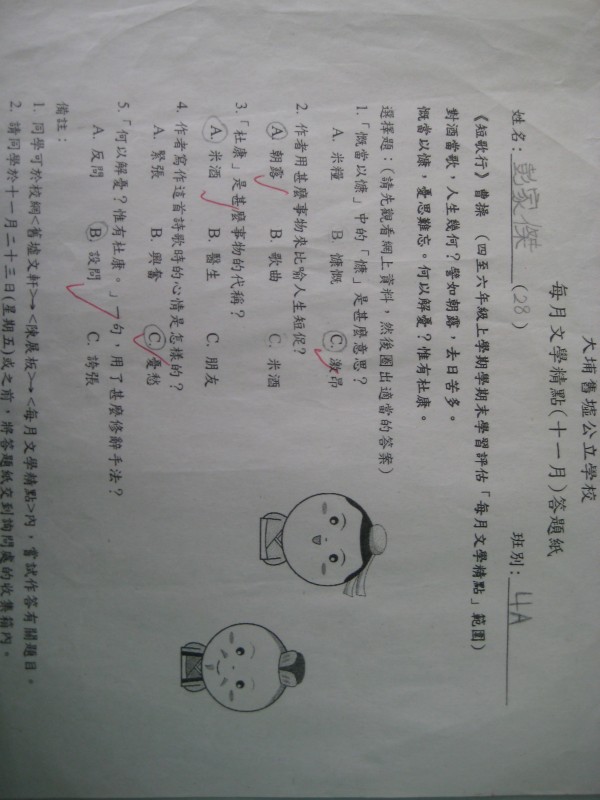 大埔舊墟公立學校
每月文學精點(十一月)答題紙
姓名:彭家傑(28) 班別:4A
《短歌行》曹操 (四至六年級上學期學期末學習評估「每月文學精點」範圍)
對酒當歌,人生幾何?譬如朝露,去日苦多。
慨當以慷,憂思難忘。何以解憂?惟有杜康。
選擇題:(請先觀看網上資料,然後圈出適當的答案)
1.「慨當以慷」中的「慷」是甚麼意思?
A. 米糧 B. 慷慨 C. 激昂
2. 作者用甚麼事物來比喻人生短促?
A. 朝露 B. 歌曲 C. 米酒
3.「杜康」是甚麼事物的代稱?
A. 米酒 B. 醫生 C. 朋友
4. 作者寫作這首詩歌時的心情是怎樣的?
A. 緊張 B. 興奮 C. 憂愁
5.「何以解憂?惟有杜康。」一句,用了甚麼修辭手法?
A. 反問 B. 設問 C. 誇張
備註:
1. 同學可於校網<舊墟文軒>→<陳展板>→<每月文學精點>內,嘗試作答有關題目。
2. 請同學於十一月二十三日(星期五)或之前,將答題紙交到詢問處的收集箱內。